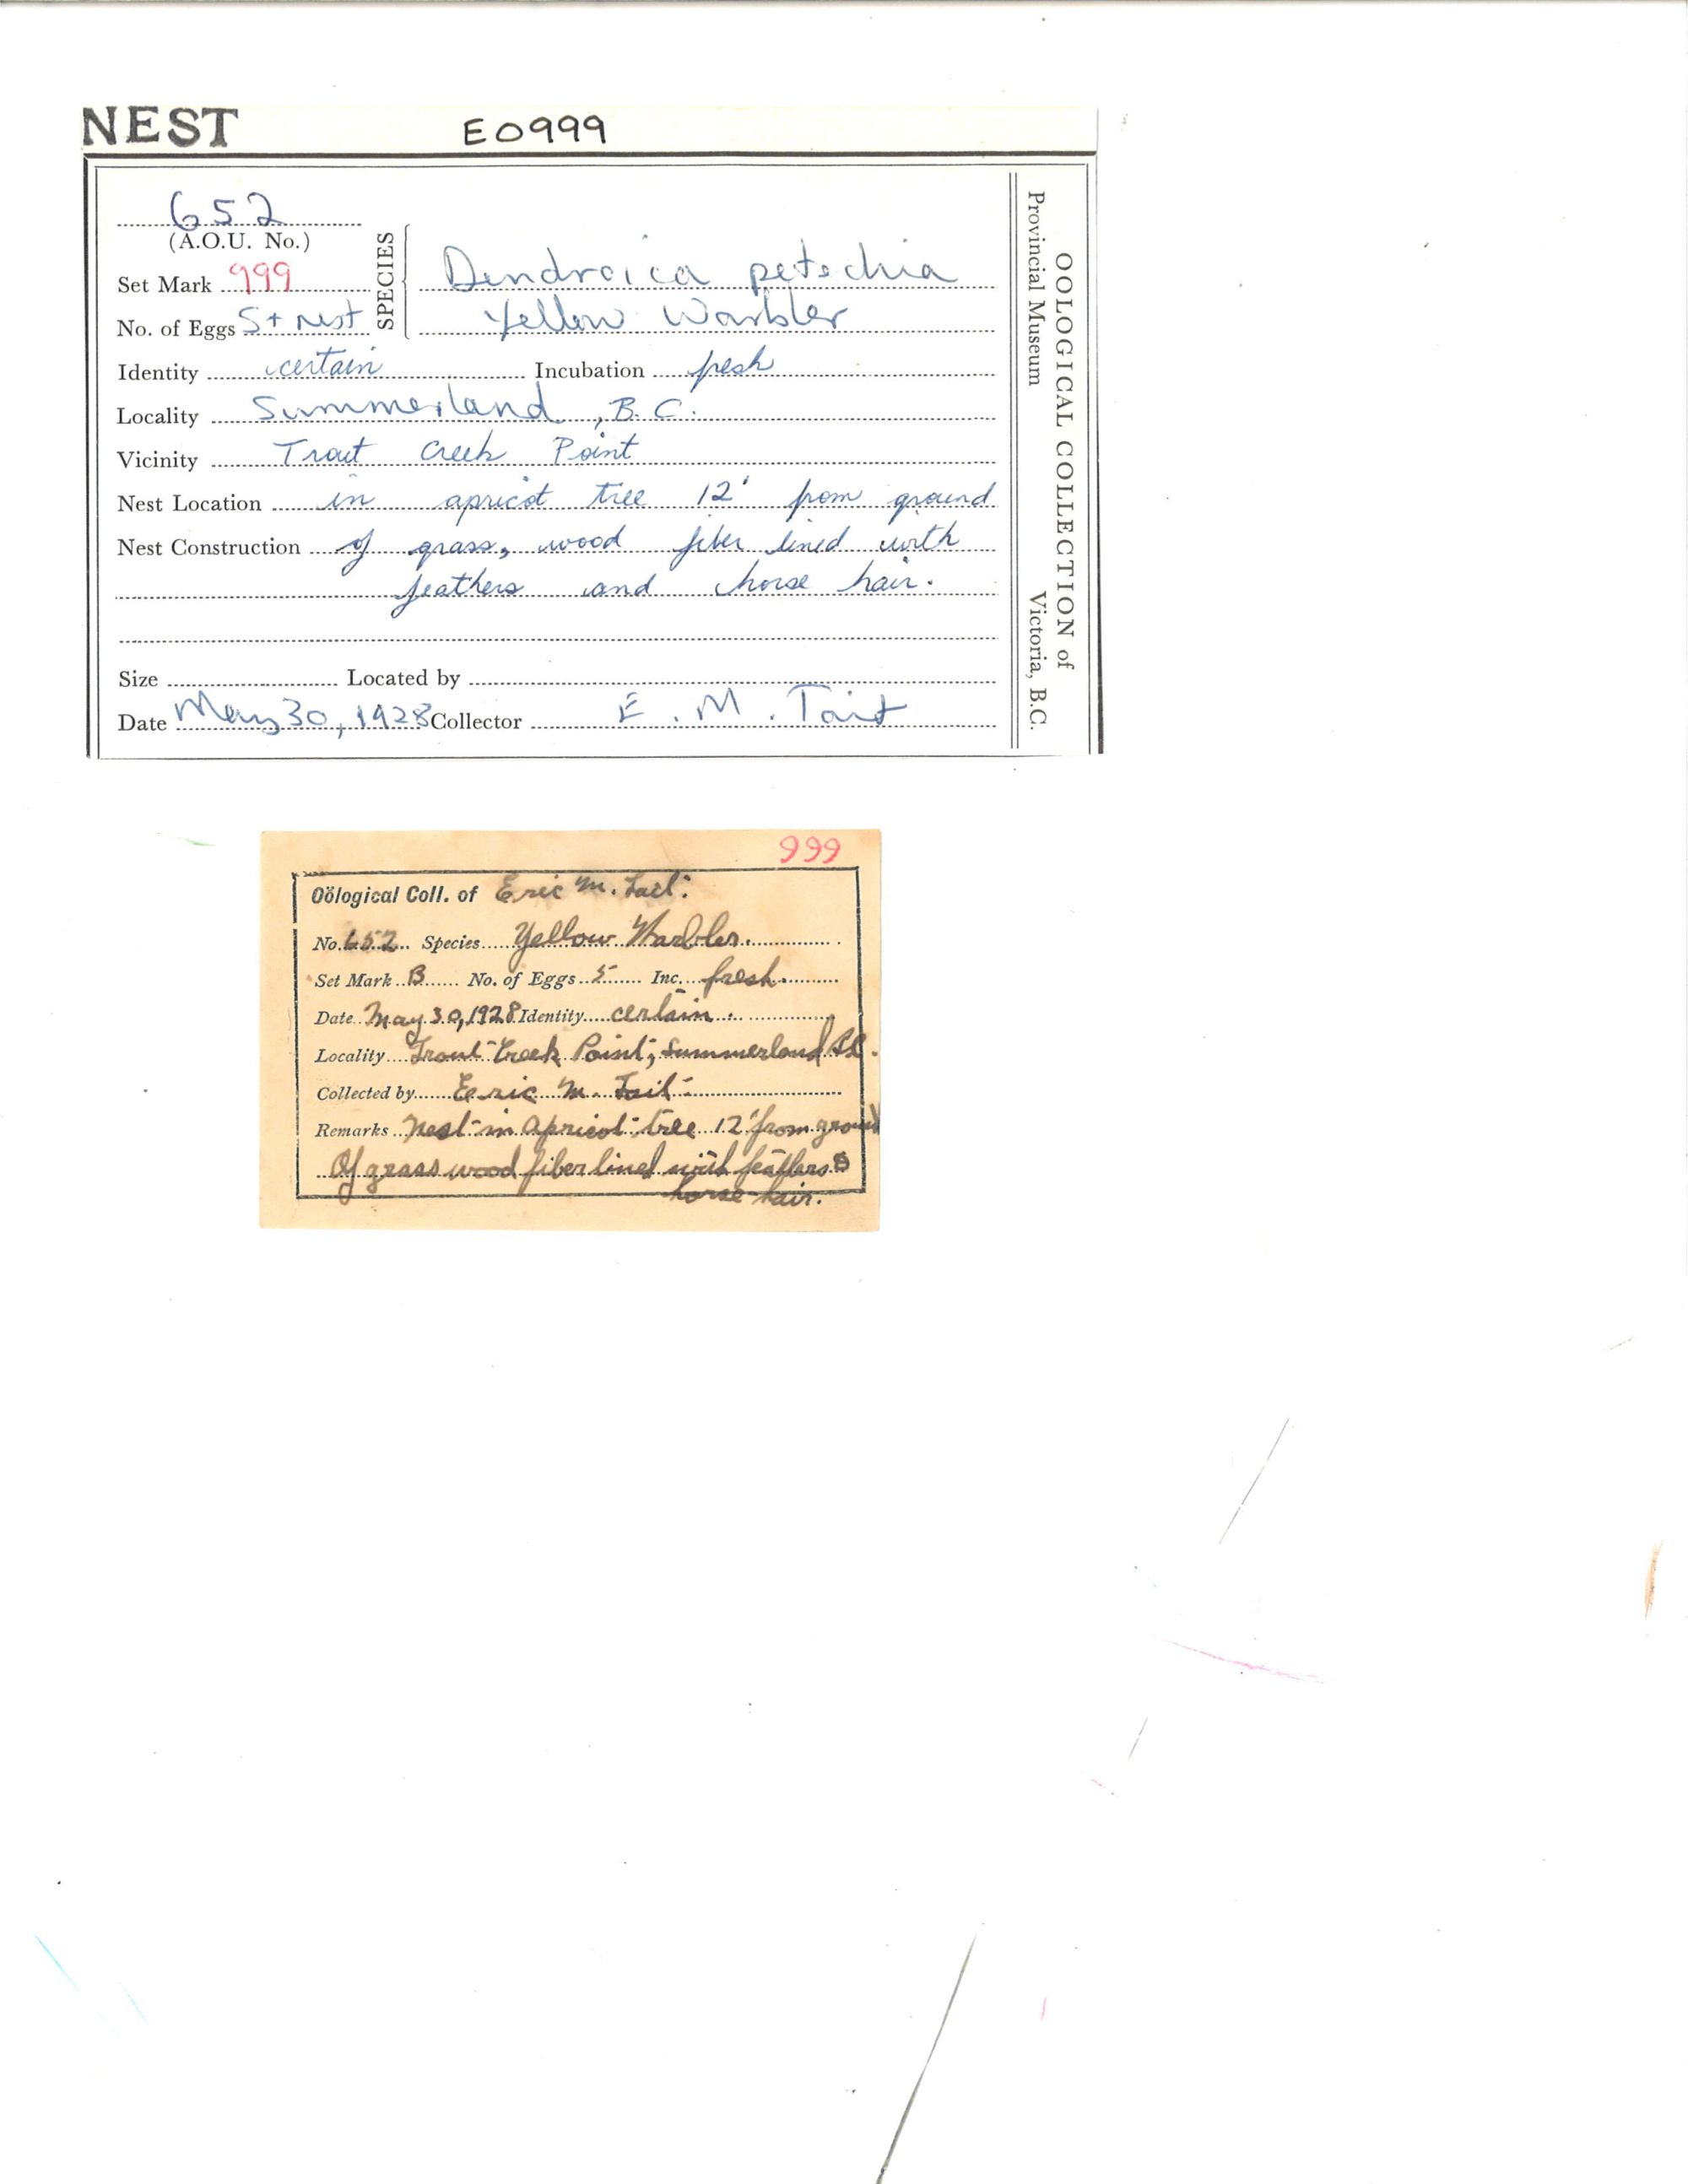 NEST E0999
652
(A.O.U. No.)
Set Mark 999
SPECIES
Dendroica petechia
No. of Eggs 5 + nest
Yellow Warbler
Identity certain Incubation fresh
Locality Summerland, B.C.
Vicinity Trout Creek Point
Nest Location in apricot tree 12' from ground
Nest Construction of grass, wood fiber lined with
feathers and horse hair.
Size Located by
Date May 30, 1928 Collector E. M. Tait
OOLOGICAL COLLECTION of
Provincial Museum Victoria, B.C.
999
Oölogical Coll. of Eric M. Tait.
No. 652 Species Yellow Warbler.
Set Mark B No. of Eggs 5 Inc. fresh.
Date May 30, 1928 Identity certain.
Locality Trout Creek Point, Summerland B.C.
Collected by Eric M. Tait
Remarks Nest in Apricot tree 12' from ground
Of grass wood fiber lined with feathers &
horse hair.